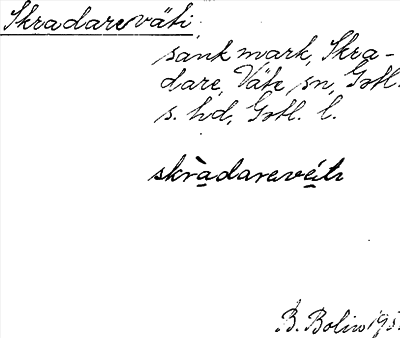 Skradareväti
sank mark, Skra-
dare, Väte sn, Gotl.
s. hd, Gotl. l.
skràdarevéiti
B. Bolin 195